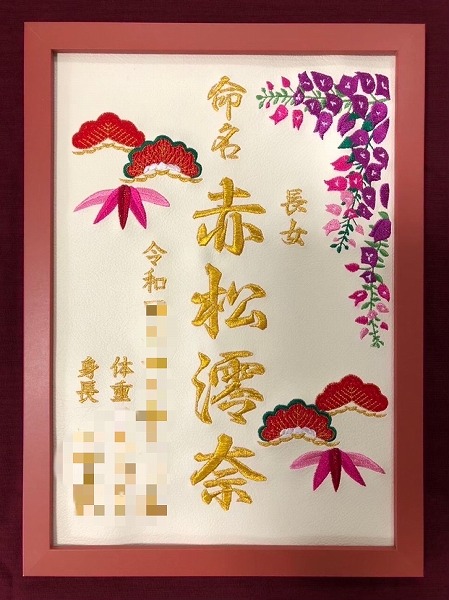 命名
長女
赤松澪奈
令和
体重
身長